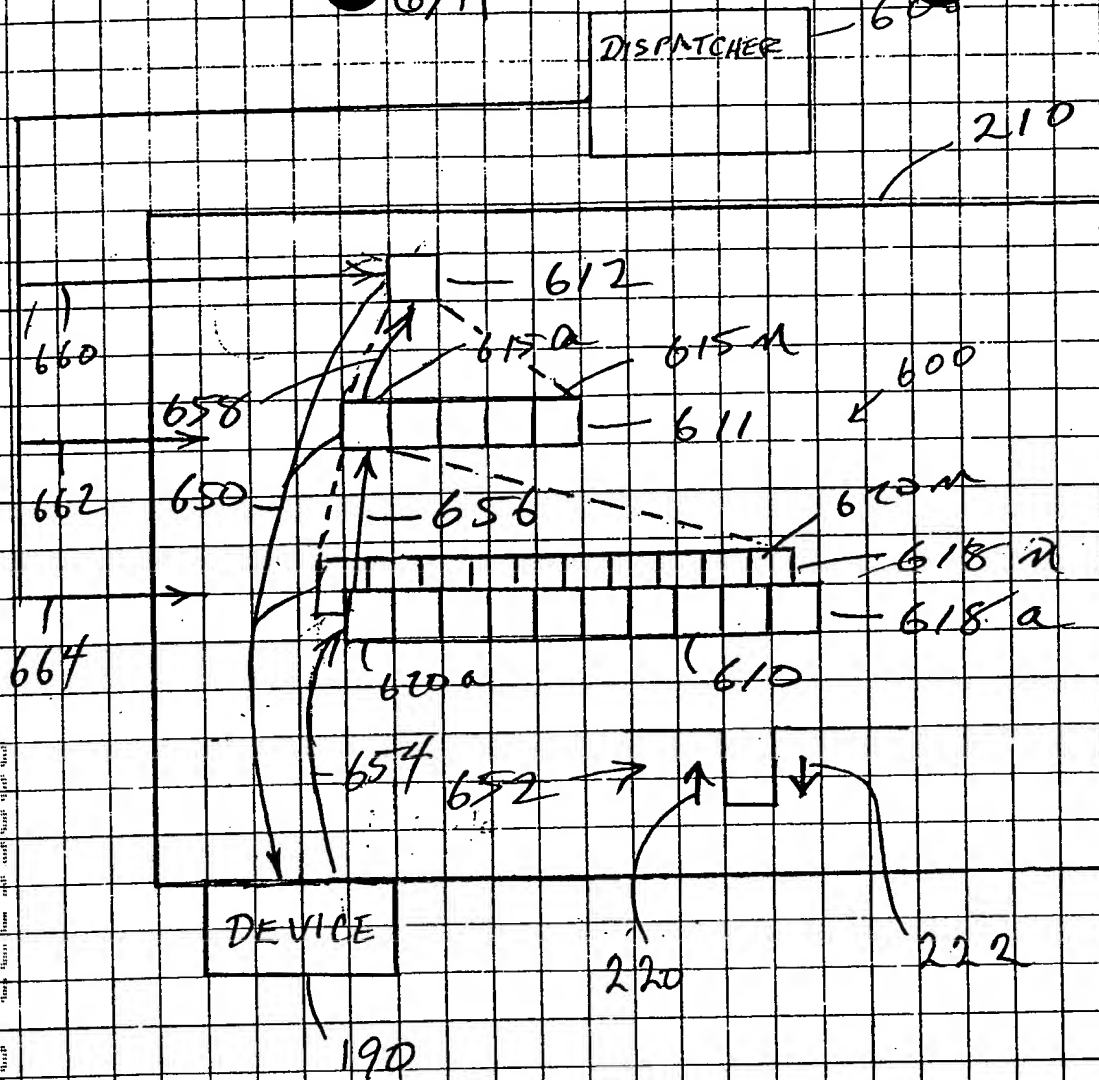 DISPATCHER
210
612
660
615a
615n
600
658
611
662
650
656
620n
618n
618a
664
620a
610
654
652
DEVICE
220
222
190